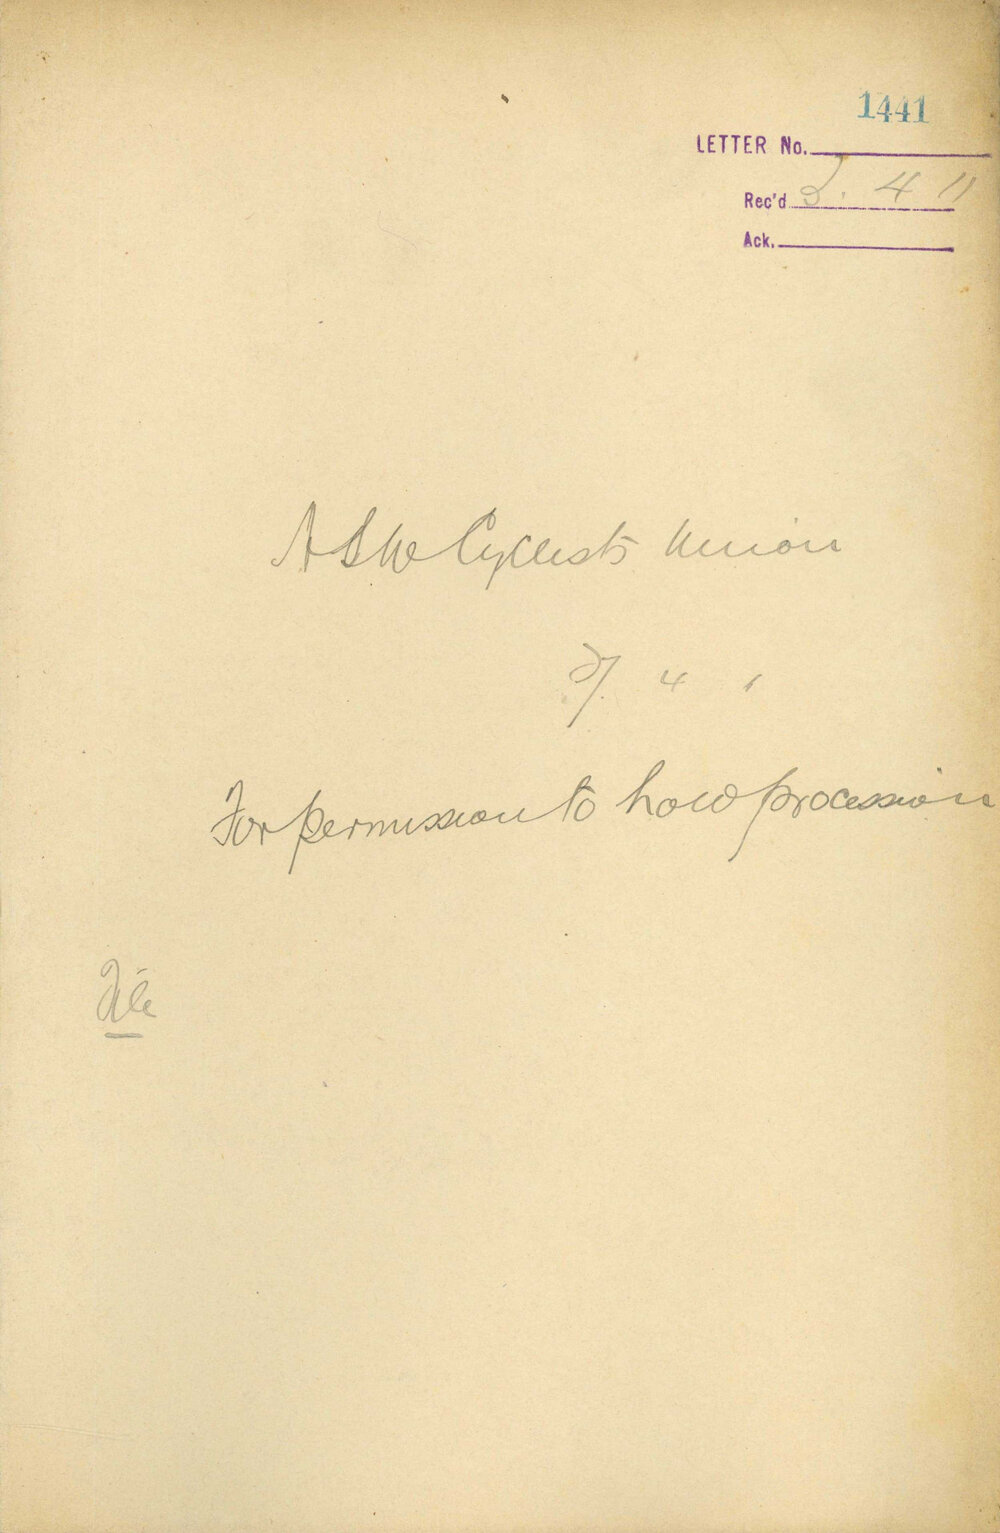 1441
LETTER No.
Rec'd 3. 4 11
Ack.
NSW Cyclists Union
For permission to hold procession
File